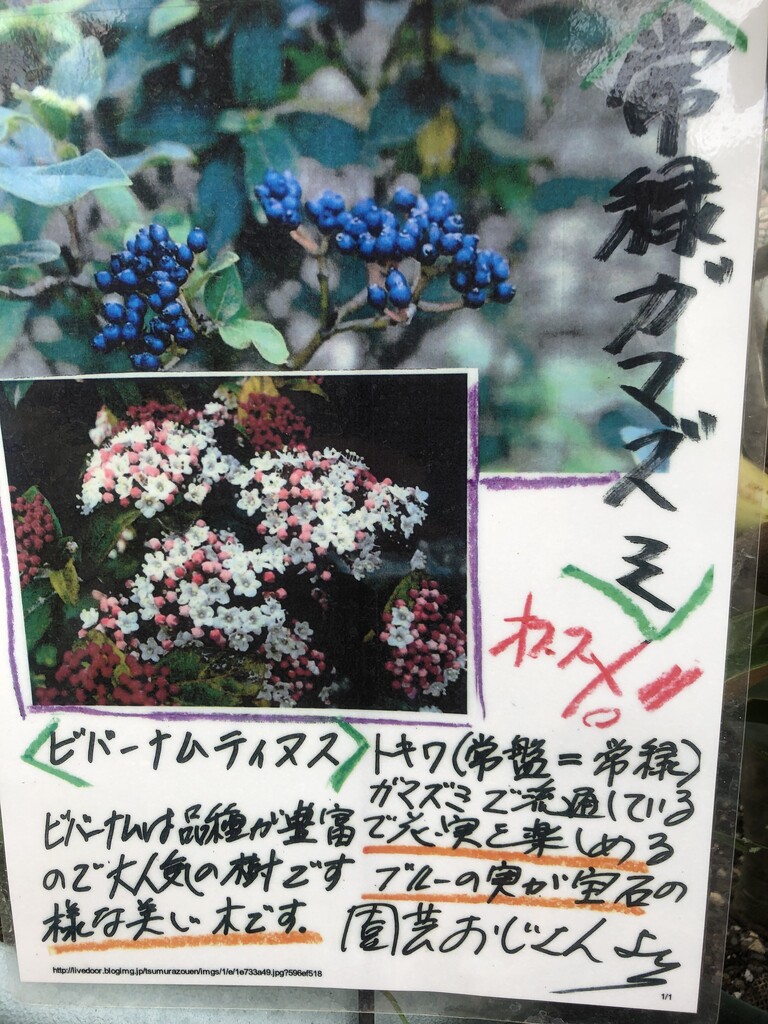 常緑ガマズミ
オススメ!!
<ビバーナムティヌス>
トキワ(常盤=常緑)
ガマズミで流通している
ビバーナムは品種が豊富
で花実を楽しめる
ので大人気の樹です
ブルーの実が宝石の
様な美しい木です。
園芸おじさん より
http://livedoor.blogimg.jp/tsumurazouen/imgs/1/e/1e733a49.jpg?596ef518
1/1